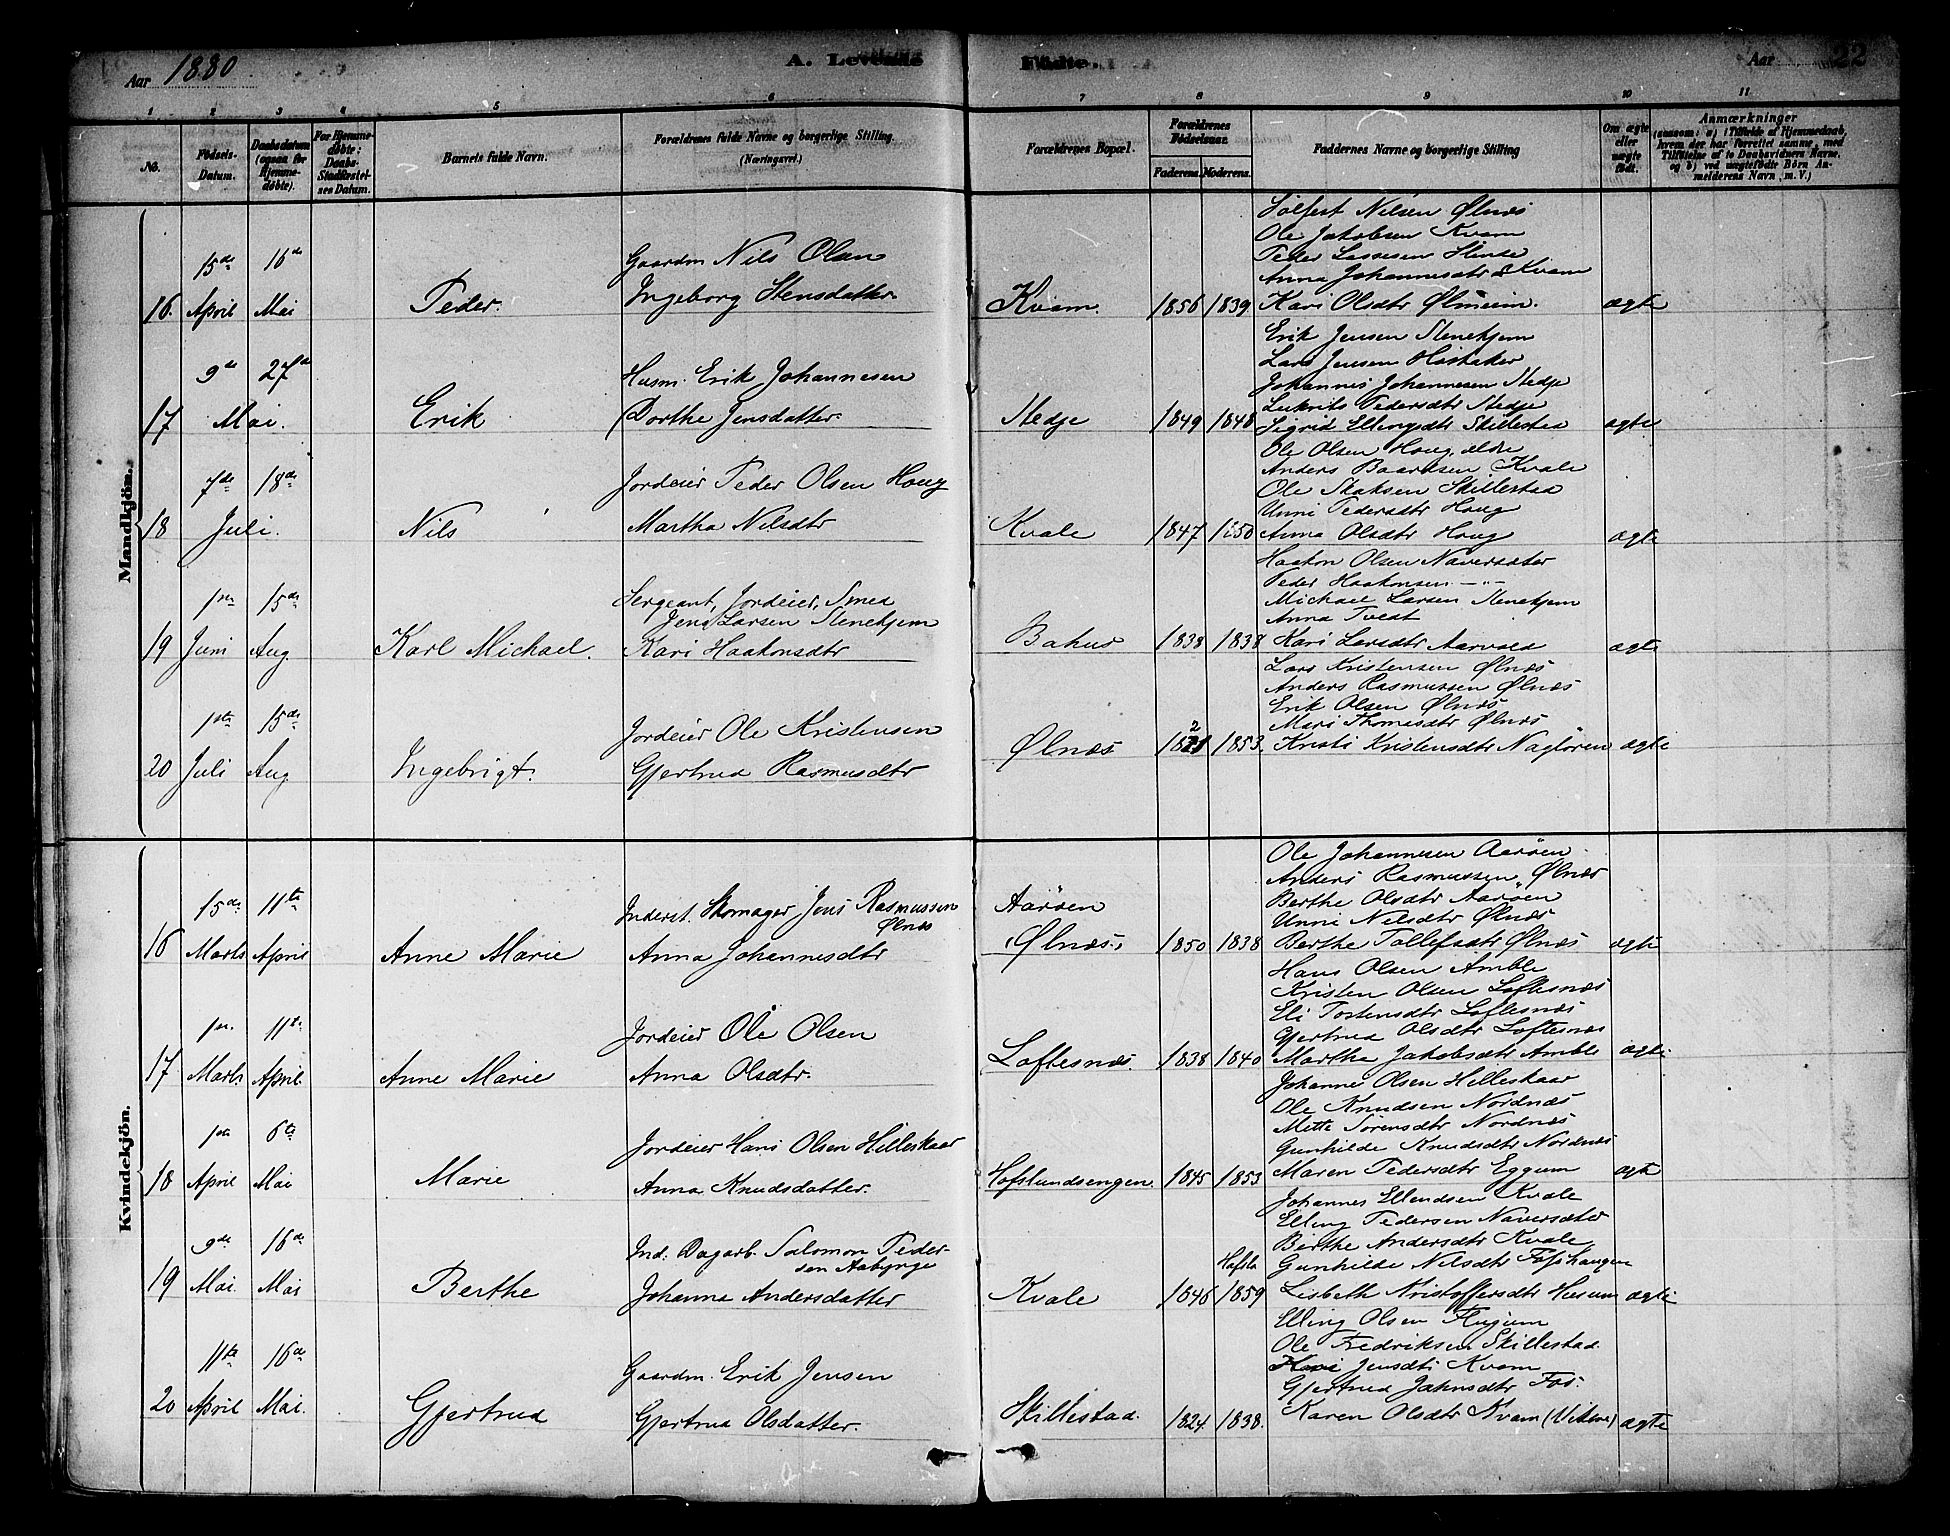 Aar 1880
A. Levende
Fødte.
Aar
22
1 2 3 4 5 6 7 8 9 10 11
No.
Födsels-
Datum.
Daabsdatum
(ogsaa for
Hjemme-
döbte).
For Hjemme-
döbte:
Daabs-
Stadfæstel-
ses Datum.
Barnets fulde Navn.
Forældrenes fulde Navne og borgerlige Stilling.
(Næringsvei.)
Forældrenes Bopæl.
Forældrenes
Födselsaar.
Faderens. Moderens.
Faddernes Navne og borgerlige Stilling
Om ægte
eller
uægte
født.
Anmærkninger
(saasom: a) i Tilfælde af Hjemmedaab,
hvem der har forrettet samme, med
Tilföielse af to Daabsvidners Navne,
og b) ved uægtefödte Börn An-
melderens Navn, m. V.)
Mandkjön.
Sølfest Nilsen Ølnæs
Ole Jakobsen Kvam
Peder Lassesen
Anna Johannesdtr Kvam
15de 16de Gaardm. Nils Olsen
16. April Mai Peder. Ingeborg Stensdatter. Kvam. 1856 1839. Kari Olsdtr Ølmeim. ægte
Erik Jensen Stenehjem
Lars Jensen Hashaker
Johannes Johannesen Stedje
Lukrits Pedersdtr Stedje
9de 27de Husm. Erik Johannesen
17 Mai. Erik Dorthe Jensdatter. Stedje 1849 1848 Sigrid Ellingsdtr Skillestad ægte
Ole Olsen Houg, ældre
Anders Baardsen Kvale
Ole Skaksen Skillestad
Unni Pedersdtr Houg
7de 18de Jordeier Peder Olsen Houg
18 Juli. Nils Martha Nilsdtr Kvale 1847 1850 Anna Olsdtr Houg ægte
Haakon Olsen Naversæter
Peder Haakonsen -"-
Michael Larsen Stenehjem
Anna Tvedt
1ste 15de Sergeant, Jordeier, Smed
Jens Larsen Stenehjem
19 Juni Aug. Karl Michael. Kari Haakonsdtr Bahus 1838 1838 Kari Larsdtr Aarvold ægte
Lars Kristensen Ølnæs
Anders Rasmussen Ølnæs
Erik Olsen Ølnæs
Mari Thomasdtr Ølnæs
1ste 15de Jordeier Ole Kristensen
20 Juli Aug Ingebrigt. Gjertrud Rasmusdtr Ølnæs 1853. Kristi Kristensdtr Nagløren ægte
Kvindekjön.
Ole Johannesen Aarøen
Anders Rasmussen Ølnæs
Berthe Olsdtr Aarøen
Unni Nilsdtr Ølnæs
15de 11te Inderst. Skomager Jens Rasmussen Ølnæs Aarøen
16 Marts April Anne Marie Anna Johannesdtr (Ølnæs) 1850 1838 Berthe Tollefsdtr Ølnæs ægte
Hans Olsen Amble
Kristen Olsen Loftesnæs
Eli Tostensdtr Loftesnæs
Gjertrud Olsdtr Loftesnæs
1ste 11te Jordeier Ole Olsen
17 Marts April Anne Marie Anna Olsdtr. Loftesnæs. 1838 1840 Marthe Jakobsdtr Amble ægte
Johannes Olsen Hilleskaar
Ole Knudsen Nordnæs
Mette Sørensdtr Nordnæs
Gunhilde Knudsdtr Nordnæs
1ste 6te Jordeier Hans Olsen Hilleskaar
18 April Mai Marie Anna Knudsdatter. Hofslundsengen. 1845 1853 Maren Pedersdtr Eggum ægte
Johannes Ellendsen Kvale
Elling Pedersen Naversæter
Berthe Andersdtr Kvale
Gunhilde Nilsdtr Fosshaugen Hofslo
9de 16de Ind. Dagarb. Salomon Peder-
sen Aabyrge
19 Mai. Mai Berthe Johanna Andersdatter Kvale 1846 1859 Lisbeth Kristoffersdtr Husum ægte
Elling Olsen Flugum
Ole Fredriksen Skillestad
Kari Jensdtr Kvam
Gjertrud Jahnsdtr Fos.
11te 16de Gaardm. Erik Jensen
20 April Mai. Gjertrud Gjertrud Olsdatter. Skillestad. 1824. 1838. Karen Olsdtr Kvam ægte